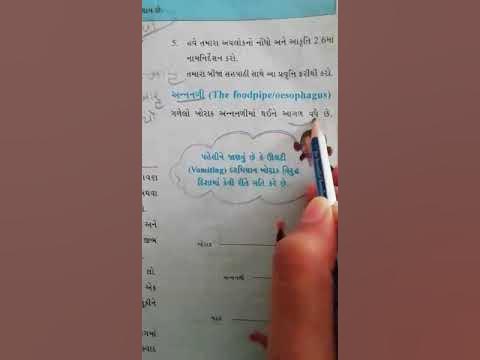 થાય છે.
5. હવે તમારા અવલોકનો નોંધો અને આકૃતિ 2.6માં
નામનિર્દેશન કરો.
તમારા બીજા સહપાઠી સાથે આ પ્રવૃત્તિ ફરીથી કરો.
અન્નનળી (The foodpipe/oesophagus)
ગળેલો ખોરાક અન્નનળીમાં થઈને આગળ વધે છે.
પહેલીને જાણવું છે કે ઊલટી
(Vomiting) દરમિયાન ખોરાક વિરુદ્ધ
દિશામાં કેવી રીતે ગતિ કરે છે.
ખોરાક
અન્નનળી
જઠર
અને
જીભ
લો
એક